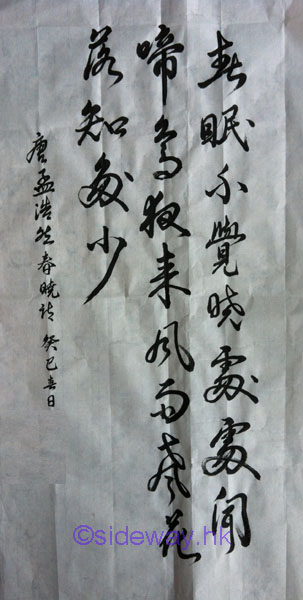 春眠不覺曉處處聞
啼鳥夜来風雨聲花
落知多少
唐孟浩然春曉詩 癸巳春日
©sideway.hk